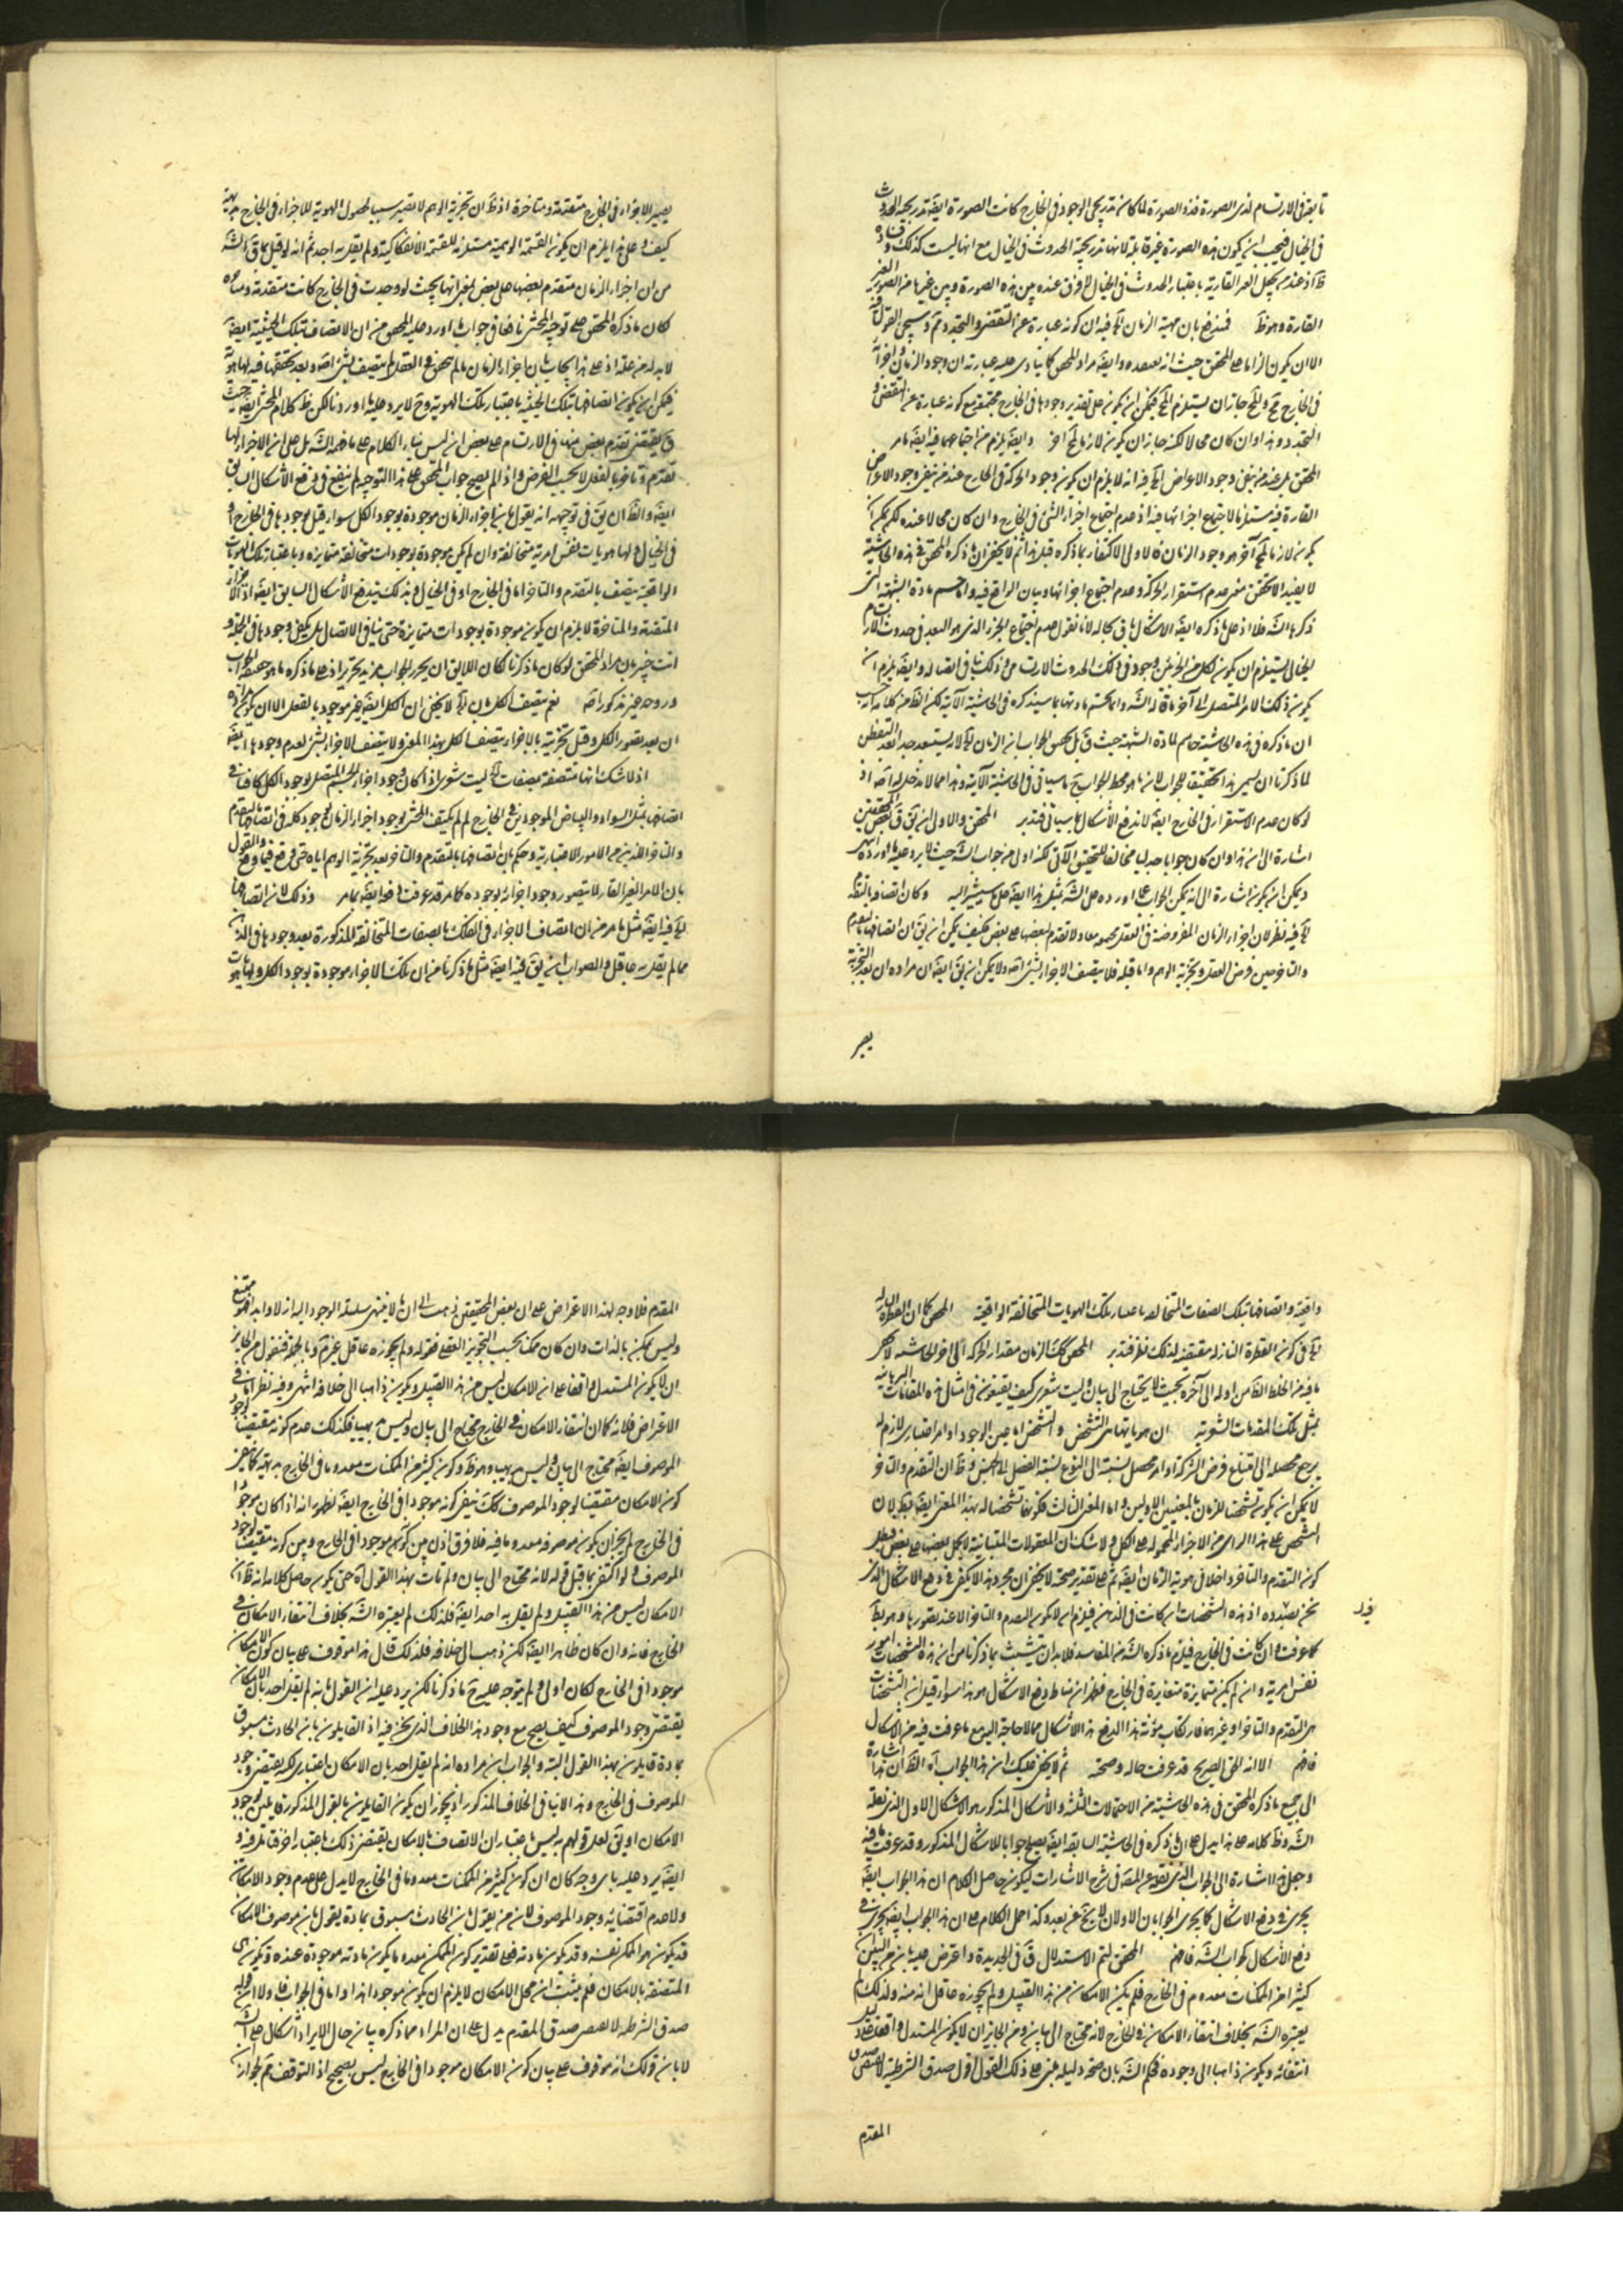 تابعة في الارتسام لذي الصورة فذو الصورة لما كان تدريجي الوجود في الخارج كانت الصورة ايضا تدريجية الحدوث
في الخيال فيجب ان يكون هذه الصورة غير قارة لانها تدريجية الحدوث في الخيال مع انها ليست كذلك
القارة وهو ظ فمندفع بان مهية الزمان آه فيه ان كونه عبارة عن التقضي والتجدد مم وسيجئ القول
الا ان يكون الزاما على المحقق حيث انه بصدده وايضا مراد المحقق كما ينادي عليه عبارته ان وجود الزمان واجزائه
في الخارج مح والمح جاز ان يستلزم المح فيمكن ان يكون على تقدير وجودها في الخارج مجتمعة مع كونه عبارة عن التقضي و
التجدد وهذا وان كان محالا لكنه جاز ان يكون لازما لمح آخر وايضا يلزم من اجتماعهما فيه ايضا مامر
القارة فيه مستلزما لاجتماع اجزائها فيه اذ عدم اجتماع اجزاء الشئ في الخارج وان كان محالا عنده لكن يمكن ان
يكون لازما لمح آخر هو وجود الزمان فالاولى الاكتفاء بما ذكره قبل هذا ثم لا يخفى ان ما ذكره المحقق في هذه الحاشية
لا يفيد الا تحقق معنى عدم استقرار الحركة وعدم اجتماع اجزائها وبيان الواقع فيه واما حسم مادة الشبهة التي
ذكرها الشه فلا اذ على ما ذكره ايضا الاشكال باق بحاله لانا نقول عدم اجتماع الجزء الذي هو البعد في حدوث الارتسام
الخيالي يستلزم ان يكون لكل من الجزئين وجود في ذلك الحدوث الارتسامي وذلك ينافي اتصاله وايضا يلزم ان
يكون ذلك الامر المتصل الى آخر ما قاله الشه وانما تحسم مادتها بما سيذكره في الحاشية الآتية لكن الظ من كلامه
ان ما ذكره في هذه الحاشية حاسم لمادة الشبهة حيث ق بل تحقيق الجواب ان الزمان آه لا يستبعد جدا بعد التفطن
لما ذكرنا ان يسمى هذا تحقيقا للجواب لانه ما هو محط الجواب ح ما سيأتي في الحاشية الآتية وهذا مما لا دخل له اصلا اذ
لو كان عدم الاستقرار في الخارج ايضا لاندفع الاشكال بما سيأتي فتدبر المحقق والاولى ان يق ق بعض المحققين
اشارة الى ان هذا وان كان جوابا جدليا مخالفا للتحقيق الآتي لكنه اولى من جواب الشه حيث لا يرد عليه ما اورده
ويمكن ان يكون اشارة الى انه يمكن الجواب عما اورده على الشه بمثل هذا ايضا على ما سيشير اليه وكان اتصافه بالتقدم
آه فيه نظر لان اجزاء الزمان المفروضة في التعقل مجموعة معا ولا تقدم لبعضها على بعض فكيف يمكن ان يق ان اتصافها بالتقدم
والتأخر حين فرض العقل وتجزية الوهم واما قبله فلا يتصف الاجزاء بشئ اصلا ولا يمكن ان يق ايضا ان مراده ان بعد التجزية
يصير
يصير الاجزاء في الخارج متقدمة ومتأخرة اذ ظ ان تجزية الوهم لا تصير سببا لحصول الهوية للاجزاء في الخارج بديهة
كيف وعلى هذا يلزم ان يكون القسمة الوهمية مستلزمة للقسمة الانفكاكية ولم يقل به احد ثم انه لو قيل بما ق الشه
من ان اجزاء الزمان متقدم بعضها على بعض بمعنى انها بحيث لو وجدت في الخارج كانت متقدمة ومتأخرة
لكان ما ذكره المحقق على توجيه المحشي نافعا في جواب ما اورد عليه المحقق من ان الاتصاف بتلك الحيثية ايضا
لا بد له من علة اذ على هذا يجاب بان اجزاء الزمان ما لم يتحقق في العقل لم يتصف بشئ اصلا وبعد تحققها فيه لها هوية
فيمكن ان يكون اتصافها بتلك الحيثية باعتبار تلك الهوية وح لا يرد عليه ما اوردنا لكن ظ كلام المحشي ايضا حيث
ق يقتضي تقدم بعض منها في الارتسام على بعض انه ليس بناء الكلام على ما فهمه الشه بل على ان الاجزاء لها
تقدم وتأخر بالفعل لا بحسب الفرض واذا لم يصح جواب المحقق على هذا التوجيه لم ينفع في دفع الاشكال السابق
ايضا والظ ان يق في توجيهه انه يقول بان اجزاء الزمان موجودة بوجود الكل سواء قيل بوجودها في الخارج او
في الخيال ولها هويات نفس امرية متخالفة وان لم يكن موجودة بوجودات متخالفة متمايزة وباعتبار تلك الهويات
الواقعية يتصف بالتقدم والتأخر اما في الخارج او في الخيال وبذلك يندفع الاشكال السابق ايضا اذ الاجزاء
المتقدمة والمتأخرة لا يلزم ان يكون موجودة بوجودات متمايزة حتى ينافي الاتصال بل يكفي وجودها في الجملة و
انت خبير بان مراد المحقق لو كان ما ذكرنا لكان اللائق ان يحرر الجواب مزيد تحرير اذ على ما ذكره ما هو عمدة الجواب
وروحه غير مذكور اصلا نعم يتصف الكل بان آه لا يخفى ان الكل ايضا غير موجود بالفعل الا ان يكون مراده
ان بعد تصور الكل وقبل تجزيته بالاجزاء يتصف الكل بهذا المعنى ولا يتصف الاجزاء بشئ لعدم وجودها ايضا
اذ لا شك انها متصفة بصفات آه ليت شعري اذا كان وجود اجزاء الجسم المتصل بوجود الكل كافيا في
اتصافها بمثل السواد والبياض الموجودين في الخارج لم لم يكتف المحشي بوجود اجزاء الزمان بوجود كله في اتصافها بالتقدم
والتأخر الذين من الامور الاعتبارية وحكم بان اتصافها بالتقدم والتأخر بعد تجزية الوهم اياه حتى وقع فيما وقع والقول
بان الامر الغير القار لا يتصور وجود اجزائه بوجوده كما مر قد عرفت ما فيه ايضا بما مر وذلك لان اتصافها
آه فيه ايضا مثل ما مر من ان اتصاف الاجزاء في الفلك بالصفات المتخالفة المذكورة بعد وجودها في الذهن
مما لم يقل به عاقل والصواب ان يق فيه ايضا مثل ما ذكرنا من ان تلك الاجزاء موجودة بوجود الكل ولها هويات
واقعية واتصافها بتلك الصفات المتخالفة باعتبار تلك الهويات المتخالفة الواقعية المحقق كما ان القطرة النازلة
آه في كون القطرة النازلة مقتضية لذلك نظر فتدبر المحقق كك الزمان مقدار الحركة الى آخر الحاشية لا يخفى
ما فيه من الخلط الظ من اوله الى آخره بحيث لا يحتاج الى بيان وليت شعري كيف يقتنعون في امثال هذه المقامات البرهانية
بمثل تلك المقدمات الشعرية ان هوياتها هي التشخص والتشخص اما عين الوجود او امر اعتباري لازم له
يرجع محصله الى امتناع فرض الشركة او امر محصل نسبته الى النوع نسبة الفصل الى الجنس وظ ان التقدم والتأخر
لا يمكن ان يكون تشخصا للزمان بالمعنيين الاولين واما المعنى الثالث فكونهما تشخصا له بهذا المعنى ايضا بط لان
التشخص على هذا الرأي من الاجزاء المحمولة على الكل ولا شك ان المعقولات المتباينة لا يحمل بعضها على بعض وبعد
كون التقدم والتأخر داخلا في هوية الزمان ايضا ثم على تقدير صحته لا يخفى ان مجرد هذا لا يكفي في دفع الاشكال الذي
نحن بصدده اذ هذه التشخصات ان كانت في الذهن فيلزم ان لا يكون التقدم والتأخر الا عند تصورها وهو بط
كما عرفت وان كانت في الخارج فيلزم ما ذكره الشه من المفاسد فلا بد ان يتشبث بما ذكرنا من ان هذه التشخصات امور
نفس امرية وان لم يكن متمايزة متغايرة في الخارج فظهر ان مناط دفع الاشكال هو هذا سواء قيل ان التشخصات
هي التقدم والتأخر او غيرهما فارتكاب مؤنة هذا الدفع هذا الاشكال مما لا حاجة اليه مع ما عرفت فيه من الاشكال
فافهم الا انه الحق الصريح قد عرفت حاله وصحته ثم لا يخفى عليك ان هذا الجواب آه الظ ان هذا اشارة
الى جميع ما ذكره المحقق في هذه الحاشية من الاحتمالات الثلثة والاشكال المذكور هو الاشكال الاول الذي نقله
الشه وظ كلامه على هذا يدل على ان ما ذكره في الحاشية السابقة ايضا يصلح جوابا للاشكال المذكور وقد عرفت ما فيه
وجعل هذا اشارة الى الجواب الذي نقله عن المص في شرح الاشارات ليكون حاصل الكلام ان هذا الجواب ايضا
يجري في دفع الاشكال كما يجري الجوابان الاولان لا يخ عن بعد وكذا حمل الكلام على ان هذا الجواب ايضا يجري في
دفع الاشكال كجواب الشه فافهم المحقق لتم الاستدلال ق في الجديدة واعترض عليه بان من البين ان
كثيرا من الممكنات معدوم في الخارج فلم يكن الامكان من هذا القبيل ولم يجوزه عاقل انه منه ولذلك لم
يعتبره الشه بخلاف انتفاء الامكان في الخارج لانه محتاج الى بيان ومن الجائز ان لا يكون المستدل واقفا على
انتفائه ويكون ذاهبا الى وجوده فحكم الشه بان صحة دليله مبني على ذلك القول اقول صدق الشرطية لا يقتضي صدق
المقدم
المقدم فلا وجه لهذا الاعتراض على ان بعض المحققين ذهب الى ان ما لا ينتهي سلسلة الوجود اليه ازلا وابدا فهو ممتنع
وليس بممكن بالذات وان كان ممكنا بحسب التجويز العقلي فقوله ولم يجوزه عاقل غير مم وبالجملة فنقول من الجائز
ان لا يكون المستدل واقفا على ان الامكان ليس من هذا القبيل ويكون ذاهبا الى خلافه انتهى وفيه نظر اما في
الاعتراض فلانه كما ان انتفاء الامكان في الخارج محتاج الى بيان وليس بديهيا فكذلك عدم كونه مقتضيا لوجود
الموصوف ايضا محتاج الى بيان وليس بديهيا وهو ظ وكون كثير من الممكنات معدوما في الخارج بديهة كما ينفي
كون الامكان مقتضيا لوجود الموصوف كك ينفي كونه موجودا في الخارج ايضا لظهور انه اذا كان موجودا
في الخارج لم يجز ان يكون موصوفه معدوما فيه فلا فرق اذن بين كونه موجودا في الخارج وبين كونه مقتضيا لوجود
الموصوف ولو اكتفى بما قبل قوله لانه محتاج الى بيان ولم يأت بهذا القول آه حتى يكون حاصل كلامه انه ظ ان
الامكان ليس من هذا القبيل ولم يقل به احد ايضا فلذلك لم يعتبره الشه بخلاف انتفاء الامكان في
الخارج فانه وان كان ظاهرا ايضا لكن ذهب الى خلافه فلذلك قال هذا موقوف على بيان كون الامكان
موجودا في الخارج لكان اولى ولم يتوجه عليه ح ما ذكرنا لكن يرد عليه ان القول بانه لم يقل احد بان الامكان
يقتضي وجود الموصوف كيف يصح مع وجود هذا الخلاف الذي نحن فيه اذ القائلون بان الحادث مسبوق
بمادة قايلون بهذا القول البتة والجواب ان مراده انه لم يقل احد بان الامكان اعتباري لكنه يقتضي وجود
الموصوف في الخارج وهذا لا ينافي الخلاف المذكور اذ يجوز ان يكون القايلون بالقول المذكور قايلين بوجود
الامكان او يق لعل قولهم به ليس باعتبار ان الاتصاف بالامكان يقتضي ذلك باعتبار آخر فتأمل فيه و
ايضا يرد عليه بامر وجه كان ان كون كثير من الممكنات معدوما في الخارج لا يدل على عدم وجود الامكان
ولا عدم اقتضائه وجود الموصوف لان من يقول بان الحادث مسبوق بمادة يقول بان موصوف الامكان
قد يكون هو الممكن نفسه وقد يكون مادته فعلى تقدير كون الممكن معدوما يكون مادته موجودة عنده ويكون هي
المتصفة بالامكان فلم يثبت ان محل الامكان لا يلزم ان يكون موجودا هذا واما في الجواب فاولا ان قوله
صدق الشرطية لا يقتضي صدق المقدم يدل على ان المراد مما ذكره بيان حال الايراد اشكال على الشه
لا بان قولك انه موقوف على بيان كون الامكان موجودا في الخارج ليس بصحيح اذ التوقف مم لجواز ان